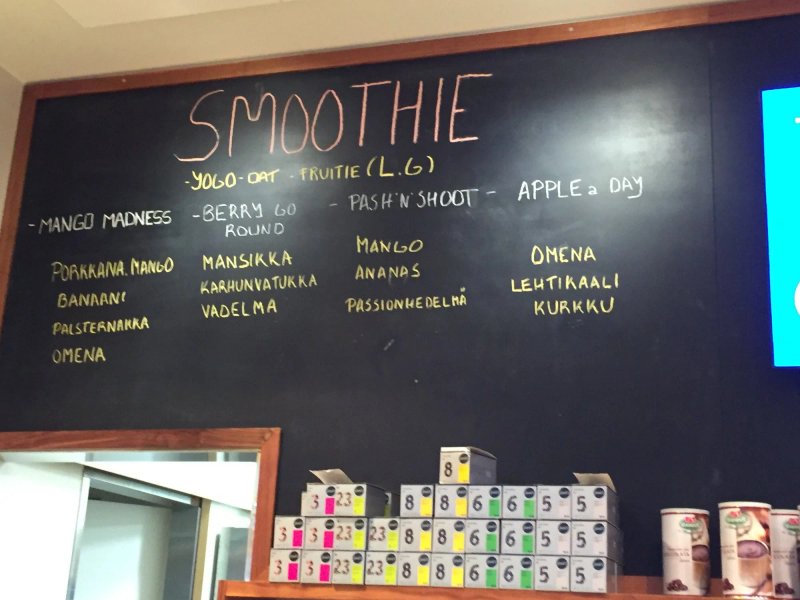 SMOOTHIE
-YOGO-OAT - FRUITIE (L.G)
- MANGO MADNESS
PORKKANA, MANGO
BANAANI
PALSTERNAKKA
OMENA
- BERRY GO
ROUND
MANSIKKA
KARHUNVATUKKA
VADELMA
- PASH'N'SHOOT -
MANGO
ANANAS
PASSIONHEDELMÄ
APPLE a DAY
OMENA
LEHTIKAALI
KURKKU
8
3 23 8 8 6 6 5 5
3 3 23 23 8 8 6 6 5 5
3 3 23 23 8 8 6 6 5 5